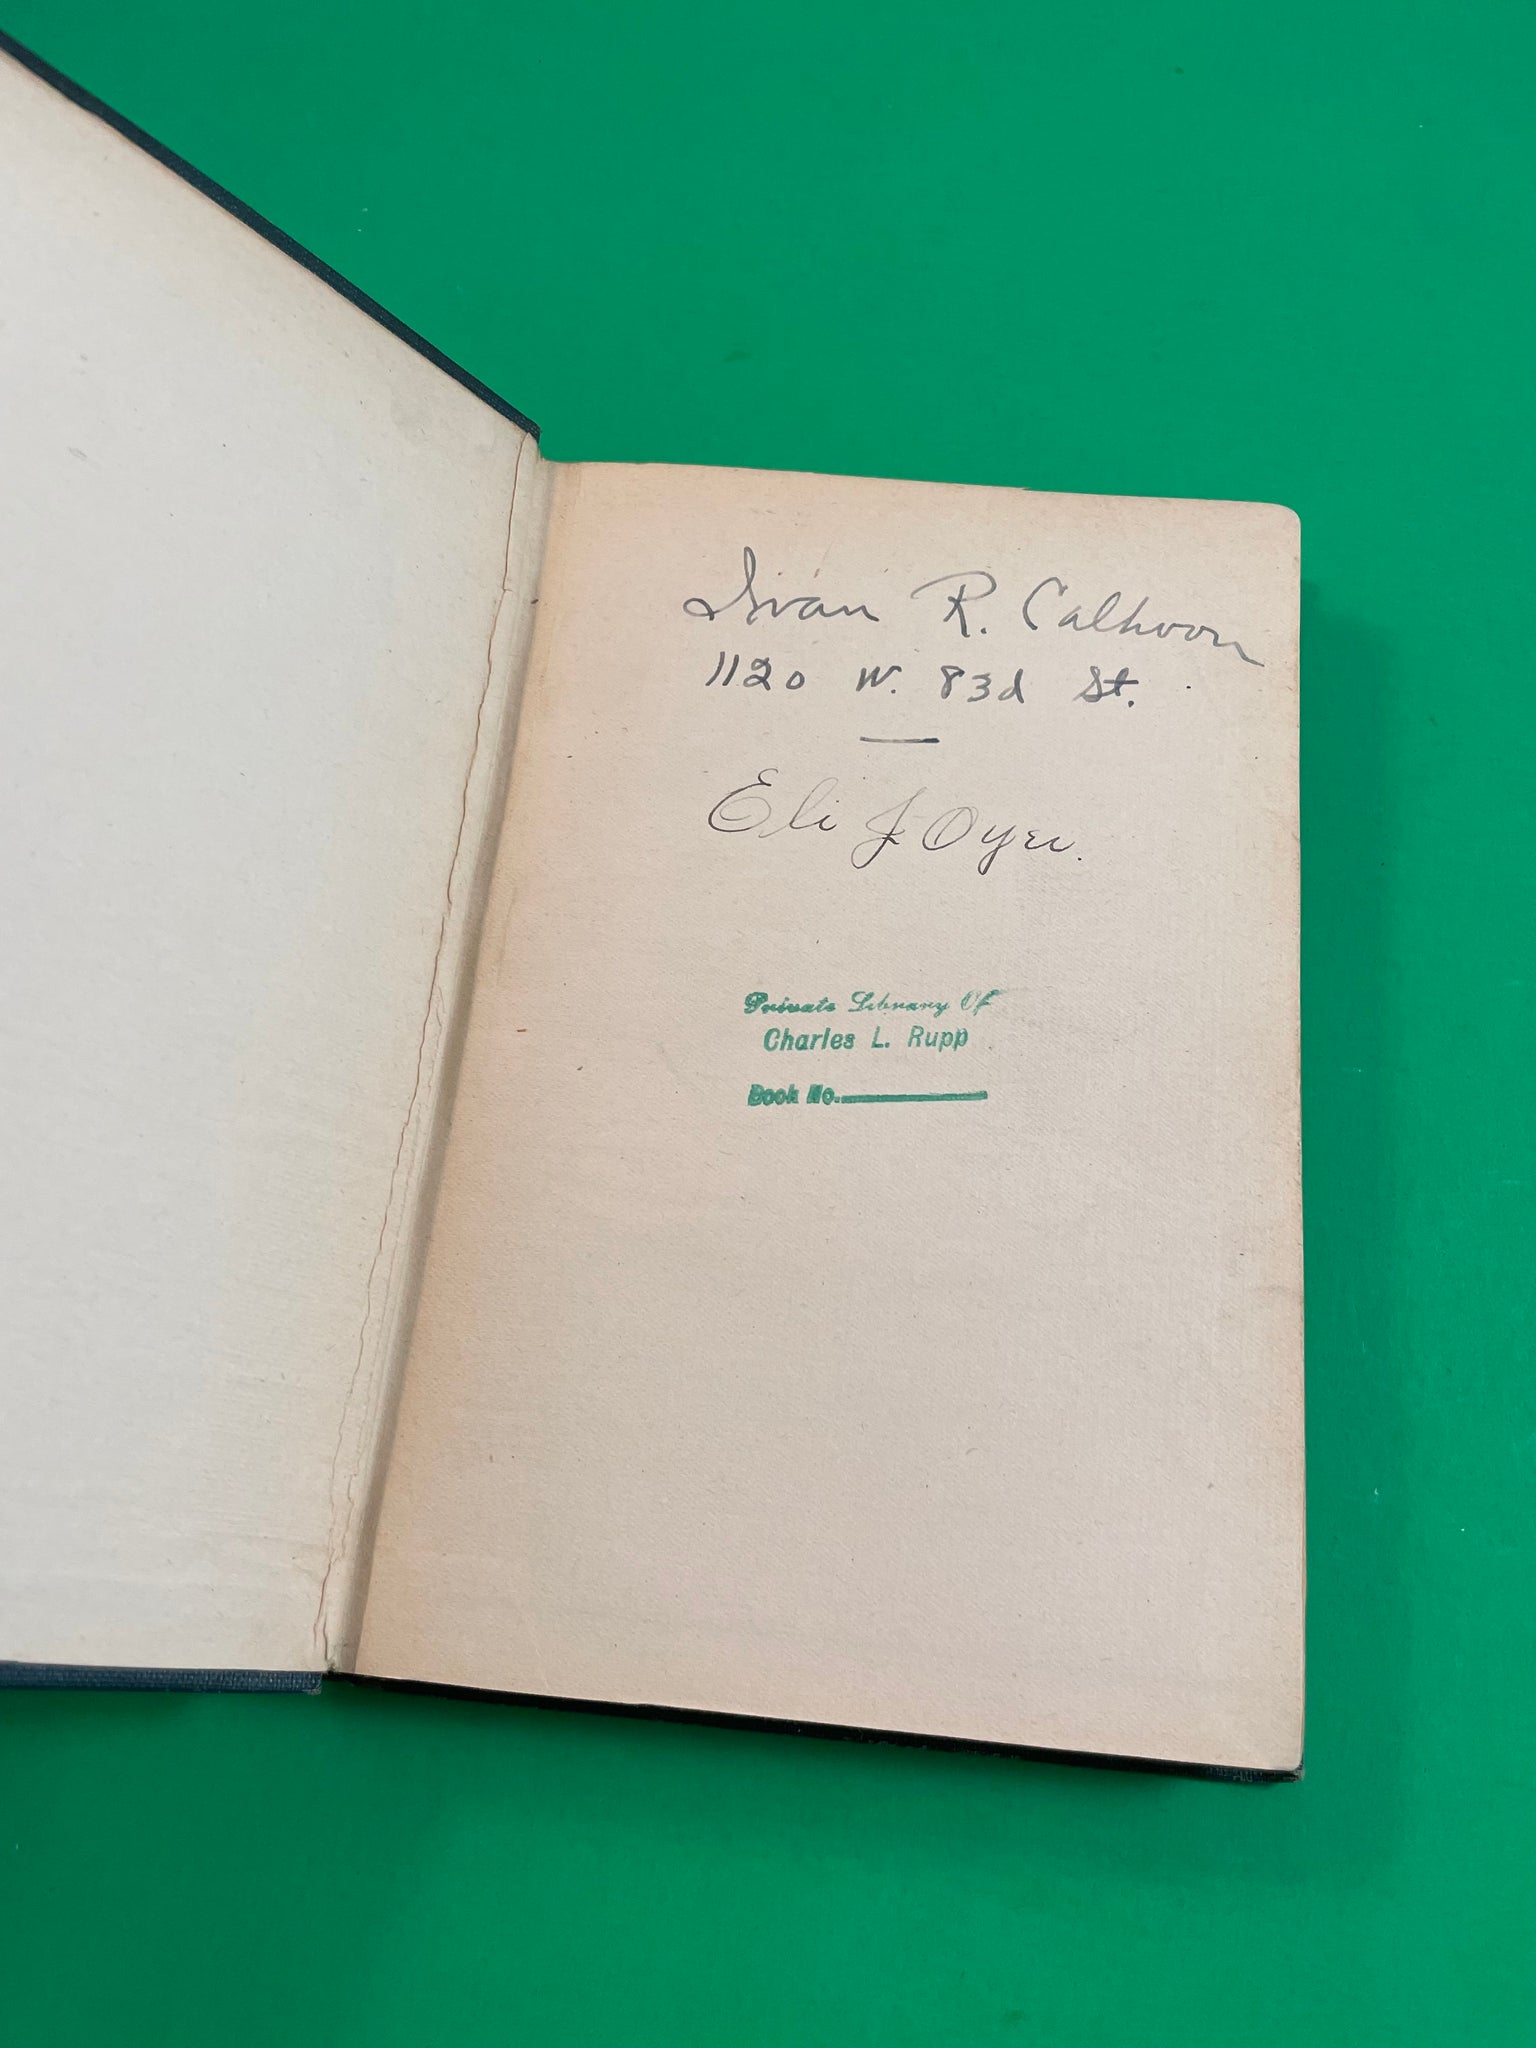 Ivan R. Calhoon
1120 W. 83d St.
Eli J Oyer.
Private Library Of
Charles L. Rupp
Book No.